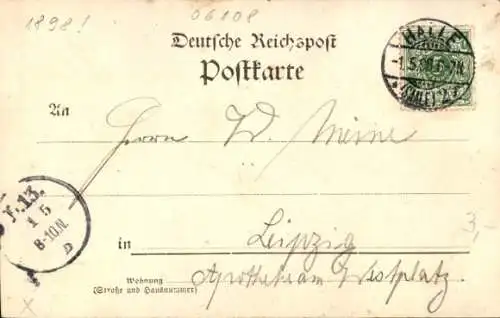 1898!
06108
Deutsche Reichspost
Postkarte
HALLE
-1.5.98.6-7N.
*(SAALE)2*
An
Herrn W. Meine
L.13.
1 5
8-10.N.
D
in Leipzig
3,-
Wohnung Apotheke am Westplatz.
(Straße und Hausnummer)
X